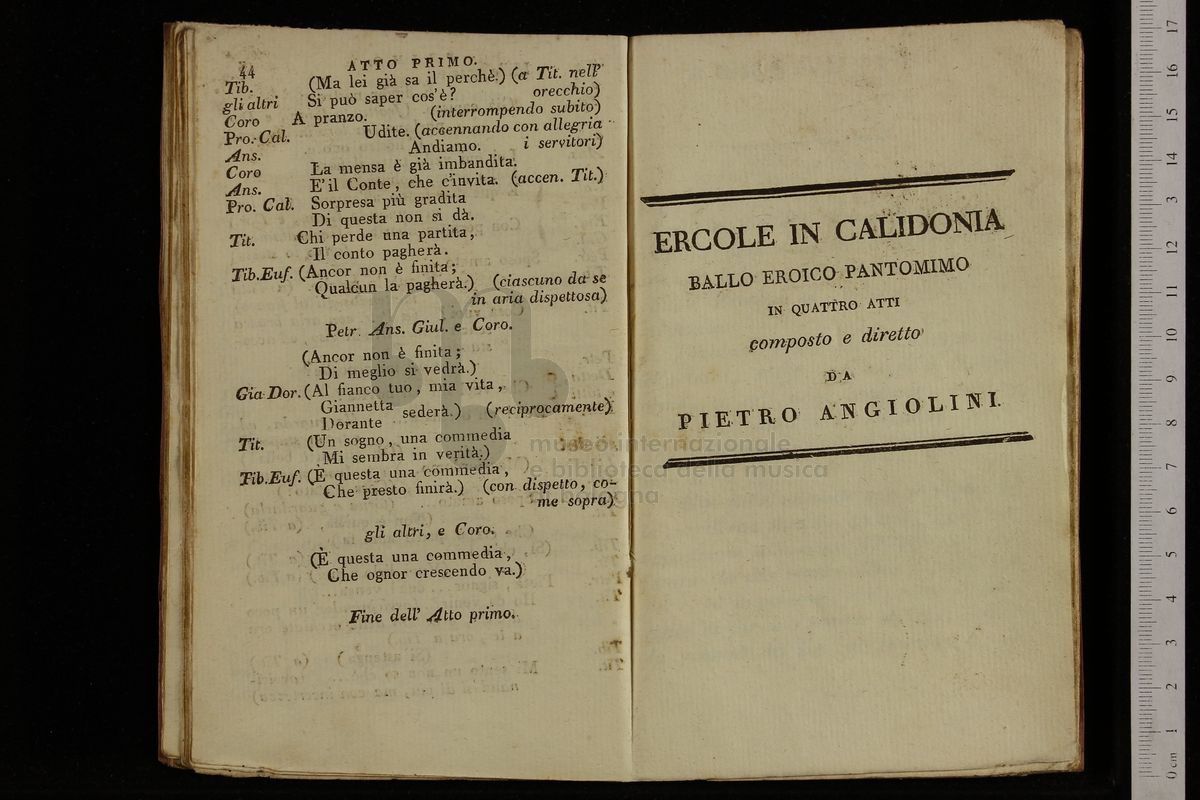 44
ATTO PRIMO.
Tib. (Ma lei già sa il perchè.) (a Tit. nell'
orecchio)
gli altri Si può saper cos'è?
Coro A pranzo. (interrompendo subito)
Pro. Cal. Udite. (accennando con allegria
i servitori)
Ans. Andiamo.
Coro La mensa è già imbandita.
Ans. E' il Conte, che c'invita. (accen. Tit.)
Pro. Cal. Sorpresa più gradita
Di questa non si dà.
Tit. Chi perde una partita,
Il conto pagherà.
Tib. Euf. (Ancor non è finita;
Qualcun la pagherà.) (ciascuno da se
in aria dispettosa)
Petr. Ans. Giul. e Coro.
(Ancor non è finita;
Di meglio si vedrà.)
Gia Dor. (Al fianco tuo, mia vita,
Giannetta sederà.) (reciprocamente)
Dorante
Tit. (Un sogno, una commedia
Mi sembra in verità.)
Tib. Euf. (È questa una commedia,
Che presto finirà.) (con dispetto, co-
me sopra)
gli altri, e Coro.
(È questa una commedia,
Che ognor crescendo va.)
Fine dell' Atto primo.
ERCOLE IN CALIDONIA
BALLO EROICO PANTOMIMO
IN QUATTRO ATTI
composto e diretto
DA
PIETRO ANGIOLINI.
museo internazionale
e biblioteca della musica
di bologna
0 cm 1 2 3 4 5 6 7 8 9 10 11 12 13 14 15 16 17